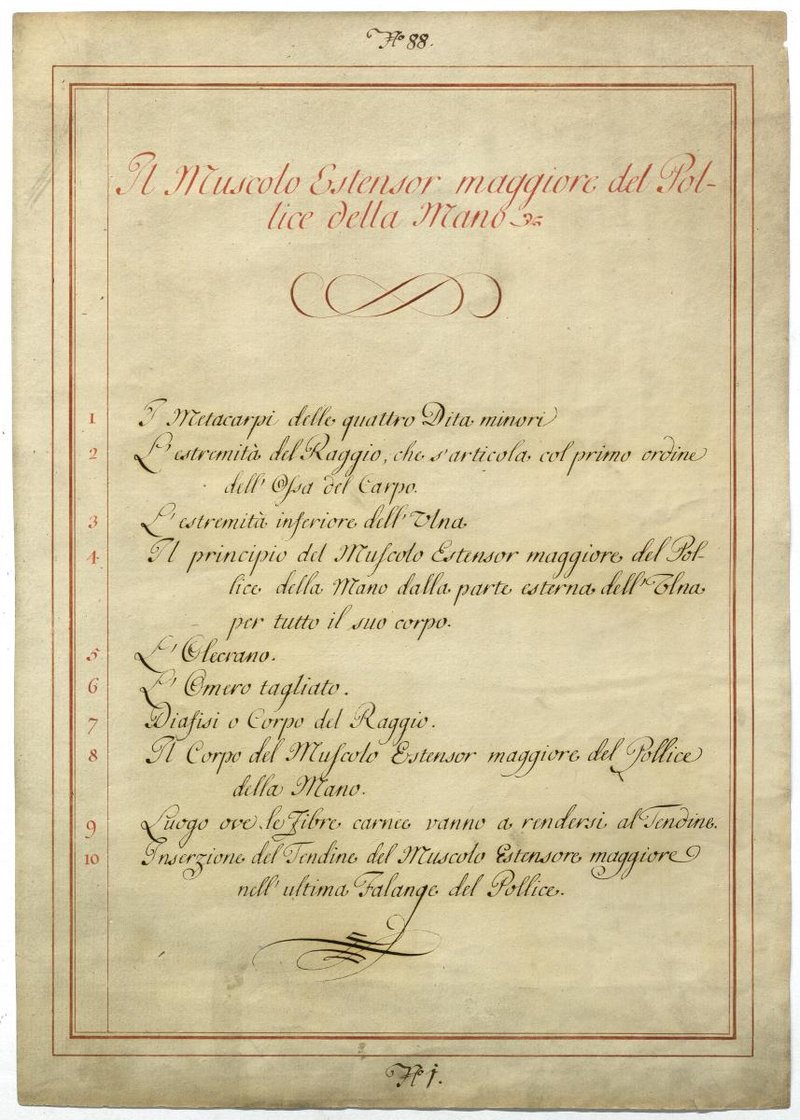 No 88.
Il Muscolo Estensor maggiore del Pol-
lice della Mano
1 I Metacarpi delle quattro Dita minori
2 L'estremità del Raggio, che s'articola col primo ordine
dell'Ossa del Carpo.
3 L'estremità inferiore dell'Vlna
4 Il principio del Muscolo Estensor maggiore del Pol-
lice della Mano dalla parte esterna dell'Vlna
per tutto il suo corpo.
5 L'Olecrano.
6 L'Omero tagliato.
7 Diafisi o Corpo del Raggio.
8 Il Corpo del Muscolo Estensor maggiore del Pollice
della Mano.
9 Luogo ove le Fibre carnee vanno a rendersi al Tendine.
10 Inserzione del Tendine del Muscolo Estensore maggiore
nell'ultima Falange del Pollice.
No 1.